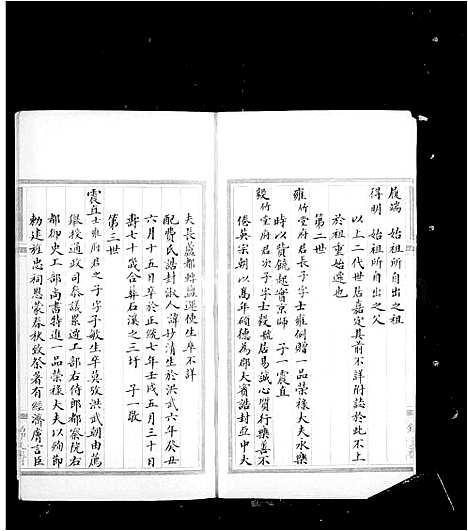 履端 始祖所自出之祖
得明 始祖所自出之父
以上二代世居嘉定其前不詳附誌於此不上
於祖重始遷也
第二世
雍竹堂府君長子字士雍例贈一品榮祿大夫永樂
時以貲饒起實京師 子一震直
毅竹堂府君次子字士毅號居易誠心質行樂善不
倦英宗朝以萬年碩德為郡大賓誥封亞中大
夫長蘆都轉鹽運使生卒不詳
配費氏誥封淑人諱妙清生於洪武六年癸丑
六月十五日卒於正統七年壬戌五月三十日
壽七十歲合葬石溪之三圩 子一敬
第三世
震直士雍府君之子字子敏生卒莫攷洪武朝由薦
擢授通政司參議累遷工部右侍郎都察院右
都御史工部尚書特進一品榮祿大夫以殉節
勅建旌忠祠恩蒙春秋致祭著有經濟膚言臣